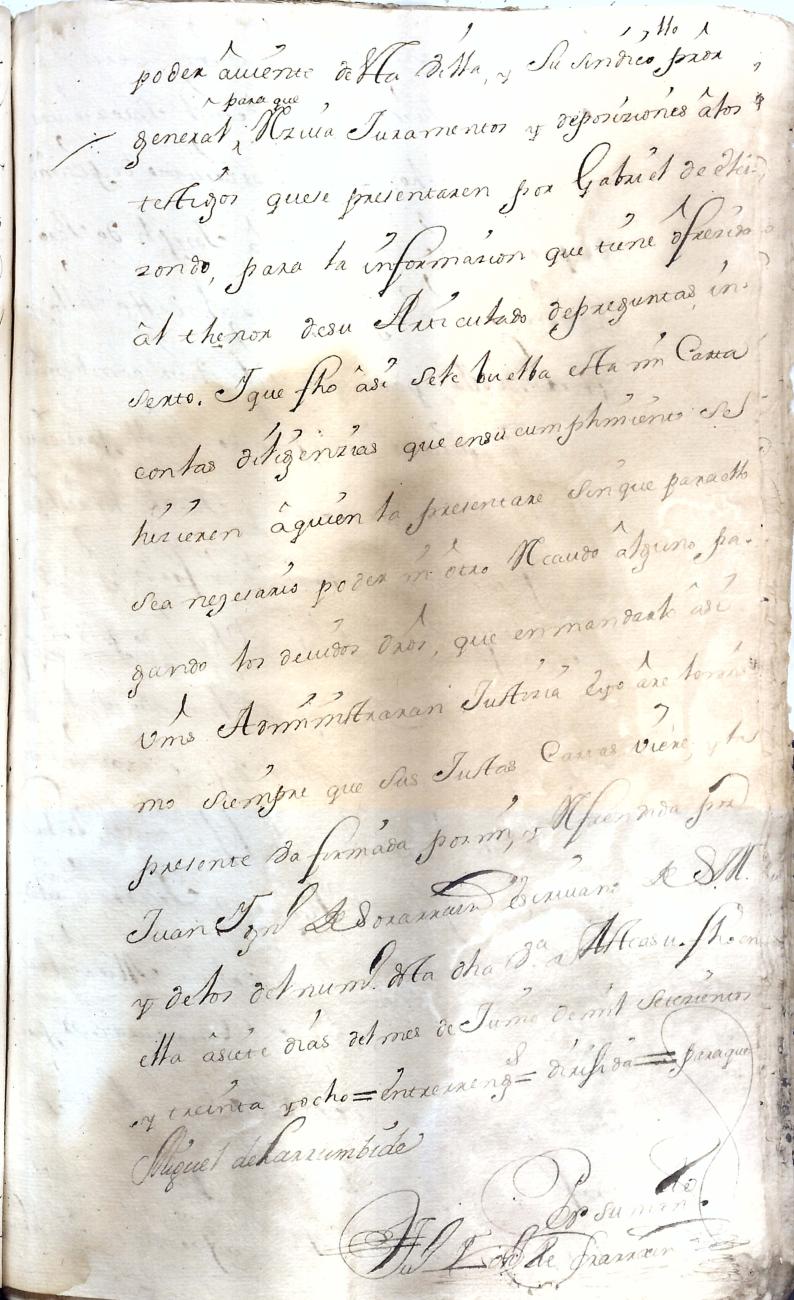 poder âuiente de dha Villa, y Su sindico pror
general, para que Rziua Juramentos y deposiziones âlos
testigos que se presentaren por Gabriel de Eli
zondo, para la informazion que tiene ôfrezido
âl thenor desu Articulado depreguntas in
serto. Y que fho âsi Sele buelba esta mi Carta
conlas diligenzias que ensu cumplimiento Se
hizieren âquien la presentare Sinque paraello
sea nezesario poder ni ôtro Rcaudo âlguno, pa
gando los deuidos dros, que enmandarlo âsi
Vms Administraran Justizia Eyo âre lomis
mo siempre que sus Justas Cartas viere, y la
presente ba firmada pormi, y Rfrendida por
Juan Ygn.º de Sorarrain Escriuano de S.M.
y delos del num.º desta dha Va. de Asteasu. fho en
ella âsiete dias delmes de Junio demil Setezientos
y treinta yocho = entrerreng.s = dirijida = paraque
Miguel de Larrumbide
Por su mandº.